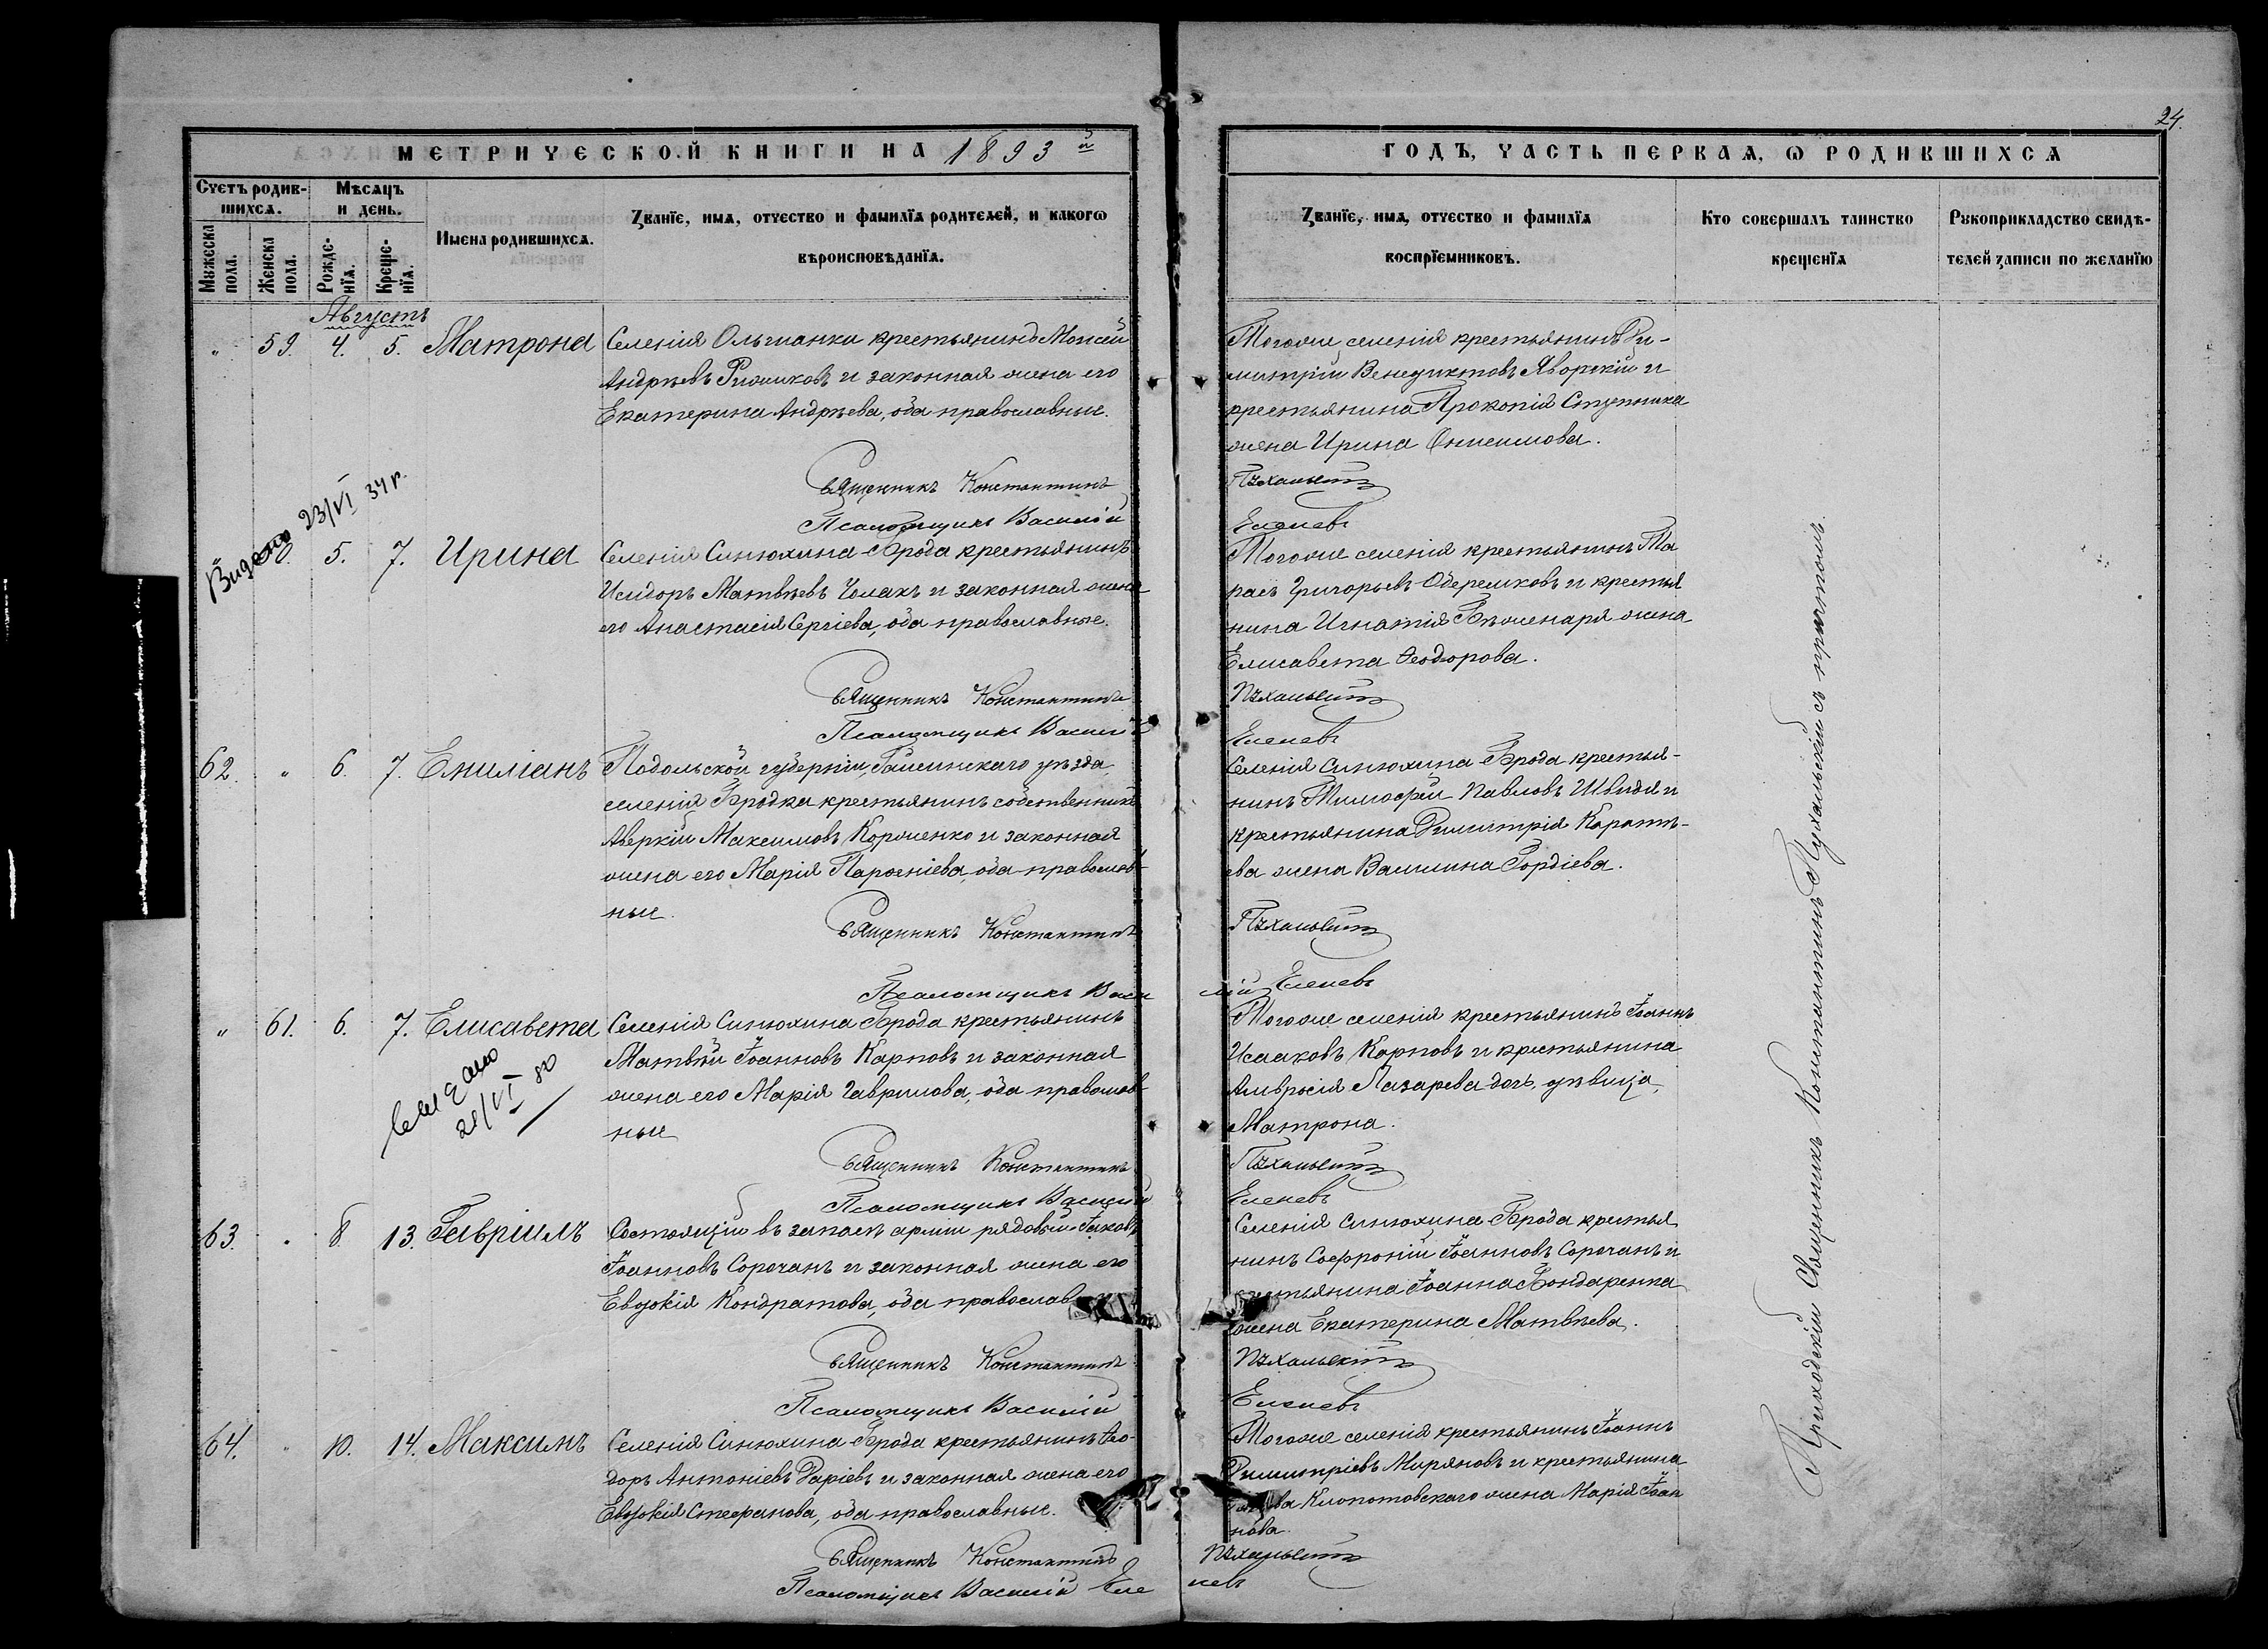 24.
МЕТРИЧЕСКОЙ КНИГИ НА 1893 й
ГОДЪ, ЧАСТЬ ПЕРВАЯ, Ѡ РОДИВШИХСЯ
Счетъ родив-
шихся.
Мѣсяцъ
и день.
Мужеска
пола.
Женска
пола.
Рожде-
нїя.
Креще-
нїя.
Имена родившихся.
Званїе, имя, отчество и фамилїя родителей, и какогѡ
вѣроисповѣданїя.
Званїе, имя, отчество и фамилїя
воспрїемниковъ.
Кто совершалъ таинство
крещенїя
Рукоприкладство свидѣ-
телей записи по желанїю
Августъ
" 59. 4. 5. Матрона
Селенія Ольшанки крестьянинъ Моисей
Андрѣевъ и законная жена его
Екатерина Андрѣева, оба православные.
Священникъ Константинъ
Псаломщикъ Василій
Тогоже селенія крестьянинъ Ди-
митрій Венедиктовъ Яворскій и
крестьянина Прокопія Ступника
жена Ирина Онисимова.
Пухальскій
Еленевъ
Видано 23/VI 34 г.
5. 7. Ирина
Селенія Синюхина-Брода крестьянинъ
Исидоръ Матвѣевъ Чомакъ и законная жена
его Анастасія Сергіева, оба православные.
Священникъ Константинъ
Псаломщикъ Василій
Тогоже селенія крестьянинъ Та
расъ Григорьевъ Обережковъ и крестья
нина Игнатія жена
Елисавета Ѳеодорова.
Пухальскій
Еленевъ
62. " 6. 7. Емиліанъ
Подольской губерніи, Гайсинскаго уѣзда,
селенія Бродка крестьянинъ собственникъ
Аверкій Максимовъ Корженко и законная
жена его Марія Парѳеніева, оба православ-
ные.
Священникъ Константинъ
Псаломщикъ Васи
Селенія Синюхина-Брода крестья-
нинъ Тимоѳей Павловъ Швидя и
крестьянина Димитрія Каратѣ-
ева жена Васи­лина Гордіева.
Пухальскій
лій Еленевъ
" 61. 6. 7. Елисавета
21/VI 80
Селенія Синюхина Брода крестьянинъ
Матвѣй Іоанновъ Карповъ и законная
жена его Марія Гаврилова, оба православ-
ные
Священникъ Константинъ
Псаломщикъ Василій
Тогоже селенія крестьянинъ Іоаннъ
Исааковъ Карповъ и крестьянина
Амвросія Лазарева дочь, дѣвица,
Матрона.
Пухальскій
Еленевъ
63. " 8. 13. Гавріилъ
Состоящій въ запасѣ арміи рядовый Іаковъ
Іоанновъ Сорочанъ и законная жена его
Евдокія Кондратова, оба православ
Священникъ Константинъ
Псаломщикъ Василій
Селенія Синюхина-Брода крестья
нинъ Софроній Іоанновъ Сорочанъ и
крестьянина Іоанна Бондаренка
жена Екатерина Матвѣева.
Пухальскій
Еленевъ
64. " 10. 14. Максимъ
Селенія Синюхина-Брода крестьянинъ Ѳео-
доръ Антоніевъ Даріевъ и законная жена его
Евдокія Стефанова, оба православные.
Священникъ Константинъ
Псаломщикъ Василій Еле
Тогоже селенія крестьянинъ Іоаннъ
Димитріевъ Миряновъ и крестьянина
Клопотовскаго жена Марія Іоан
нова.
Пухальскій
невъ
Приходскій Священникъ Константинъ Пухальскій съ причтомъ.